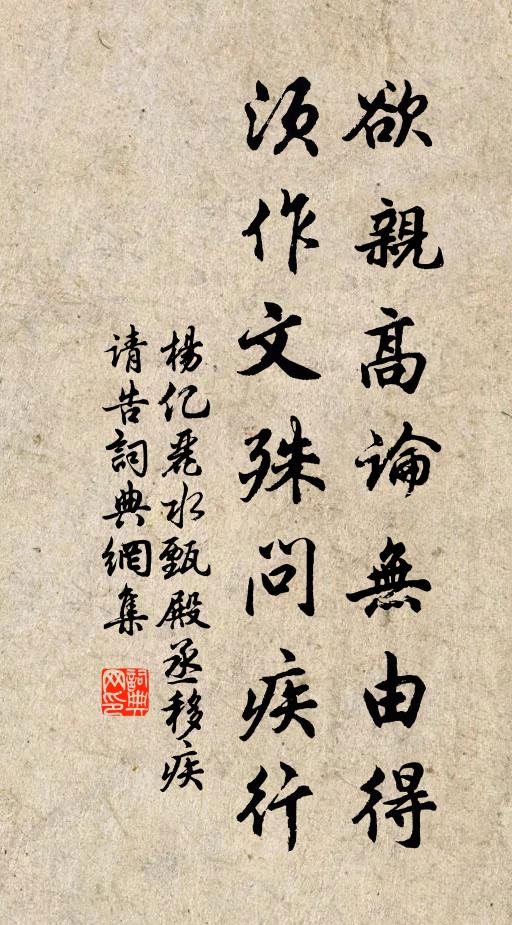 欲親高論無由得
須作文殊問疾行
楊亿麗水甄殿丞移疾
请告詞典網集
詞典网印